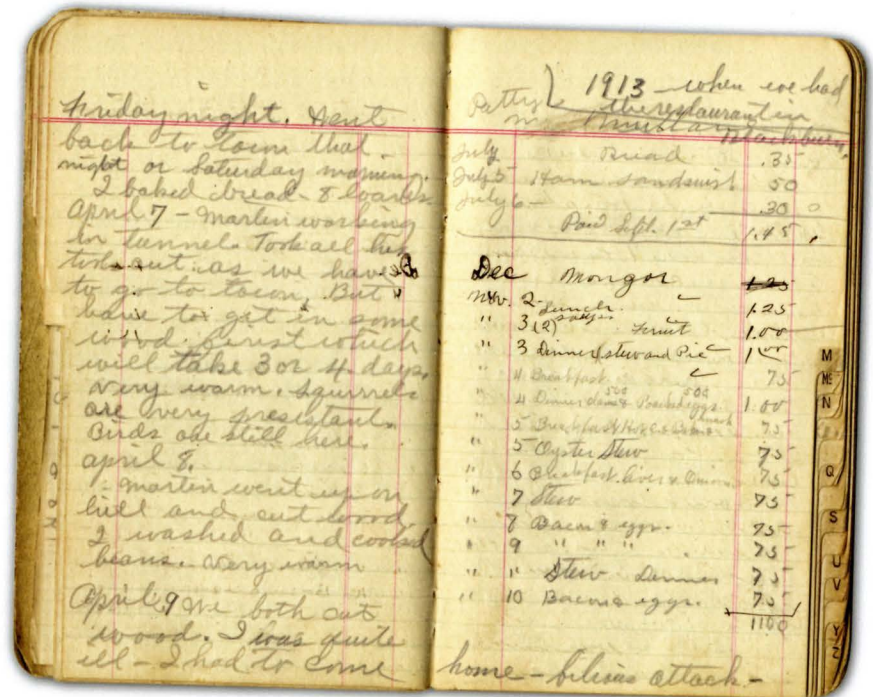 Friday night. Went
back to town that
night or Saturday morning.
I baked bread - 8 loaves
April 7 - Martin working
in tunnel. Took all his
tools out as we have
to go to town. But
have to get in some
wood first which
will take 3 or 4 days.
Very warm. Squirrels
are very presistant.
Birds are still here.
April 8.
Martin went up on
hill and cut wood.
I washed and cooked
beans. Very warm
April 9 We both cut
wood. I was quite
ill - I had to come
home - bilious attack -
1913 - when we had
the restaurant in
Blackburn
Patty
July Bread .35
July 5 Ham sandwist 50
July 6 - .30
Paid Sept. 1st 1.45
Dec Mongor 1.25
Nov. 2 - Lunch 1.25
" 3 (2) 1.00
" 3 Dinner stew and Pie 1.00
" 4 Breakfast 75
" 4 Dinner eggs 1.00
" 5 Breakfast 75
" 5 Oyster Stew 75
" 6 Breakfast Liver & Onions 75
" 7 Stew 75
" 8 Bacon & eggs. 75
" 9 " " " 75
" " Stew Dinner 75
" 10 Bacon & eggs. 75
1100
M
Mc
N
Q
S
U
V
Y
Z